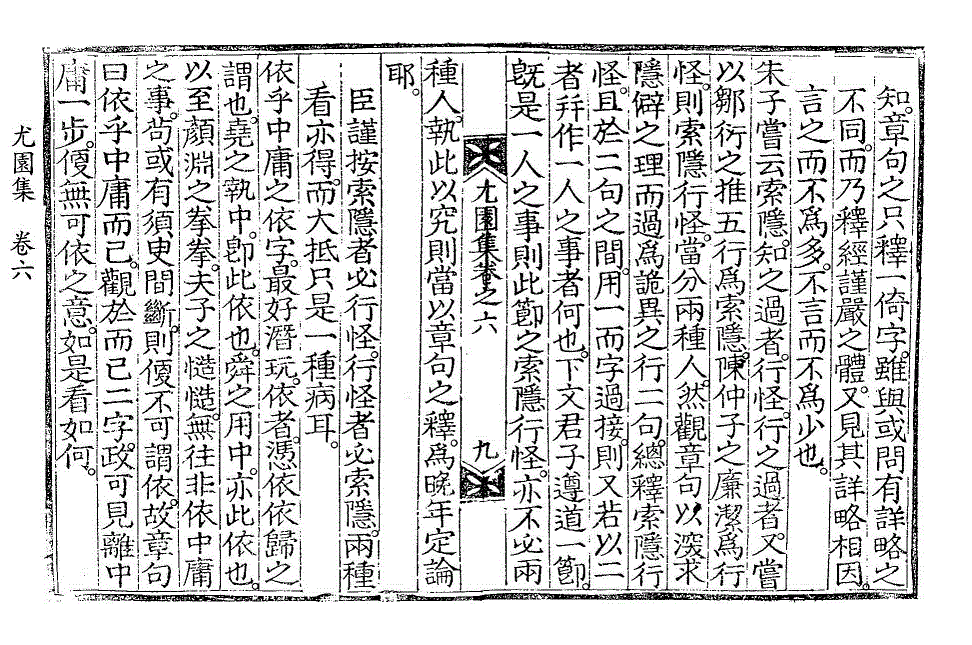 知。章句之只釋一倚字。雖與或問有詳略之
不同。而乃釋經謹嚴之體。又見其詳略相因。
言之而不爲多。不言而不爲少也。
朱子嘗云索隱。知之過者。行怪。行之過者。又嘗
以鄒衍之推五行爲索隱。陳仲子之廉潔爲行
怪。則索隱行怪。當分兩種人。然觀章句以深求
隱僻之理而過爲詭異之行二句。總釋索隱行
怪。且於二句之間。用一而字過接。則又若以二
者幷作一人之事者何也。下文君子遵道一節。
旣是一人之事則此節之索隱行怪。亦不必兩
尤園集卷之六
九
種人。執此以究則當以章句之釋。爲晩年定論
耶。
臣謹按索隱者必行怪。行怪者必索隱。兩種
看亦得。而大抵只是一種病耳。
依乎中庸之依字。最好潛玩。依者。憑依依歸之
謂也。堯之執中。卽此依也。舜之用中。亦此依也。
以至顔淵之拳拳。夫子之慥慥。無往非依中庸
之事。苟或有須臾間斷。則便不可謂依。故章句
曰依乎中庸而已。觀於而已二字。政可見離中
庸一步。便無可依之意。如是看如何。
尤園集 卷六